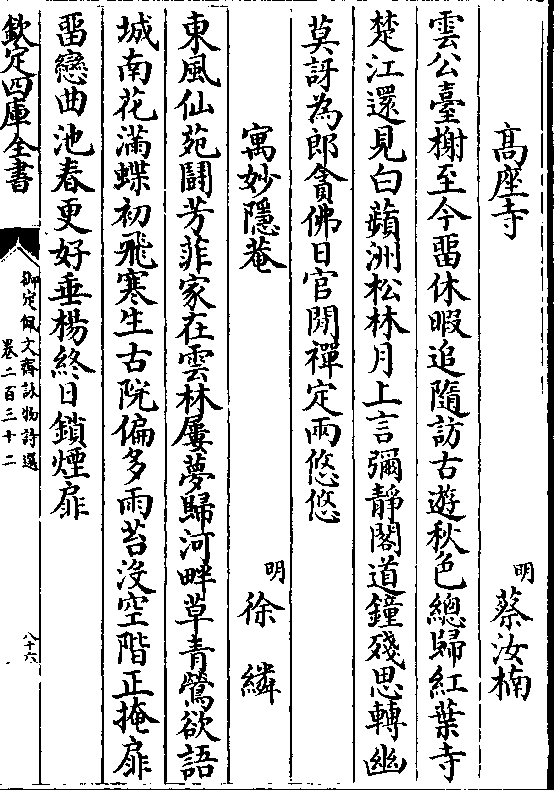 高座寺
明 蔡汝楠
雲公臺榭至今畱休暇追隨訪古遊秋色總歸紅葉寺
楚江還見白蘋洲松林月上言彌靜閣道鐘殘思轉幽
莫訝為郎貪佛日官閒禪定兩悠悠
寓妙隱菴
明 徐繗
東風仙苑鬭芳菲家在雲林屢夢歸河畔草青鶯欲語
城南花滿蝶初飛寒生古院偏多雨苔沒空階正掩扉
畱戀曲池春更好垂楊終日鎖煙扉
欽定四庫全書
御定佩文齋詠物詩選
卷二百三十二
八十六